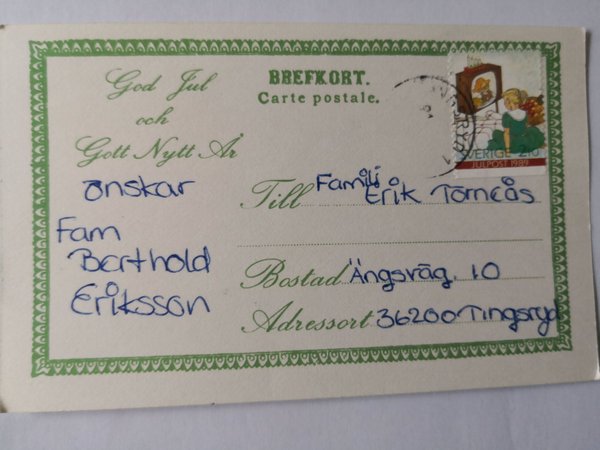 God Jul
och
Gott Nytt År
önskar
Fam
Berthold
Eriksson
BREFKORT.
Carte postale.
Till Familj
Erik Torneås
Bostad Ängsväg. 10
Adressort 36200 Tingsryd
SVERIGE 210
JULPOST 1989